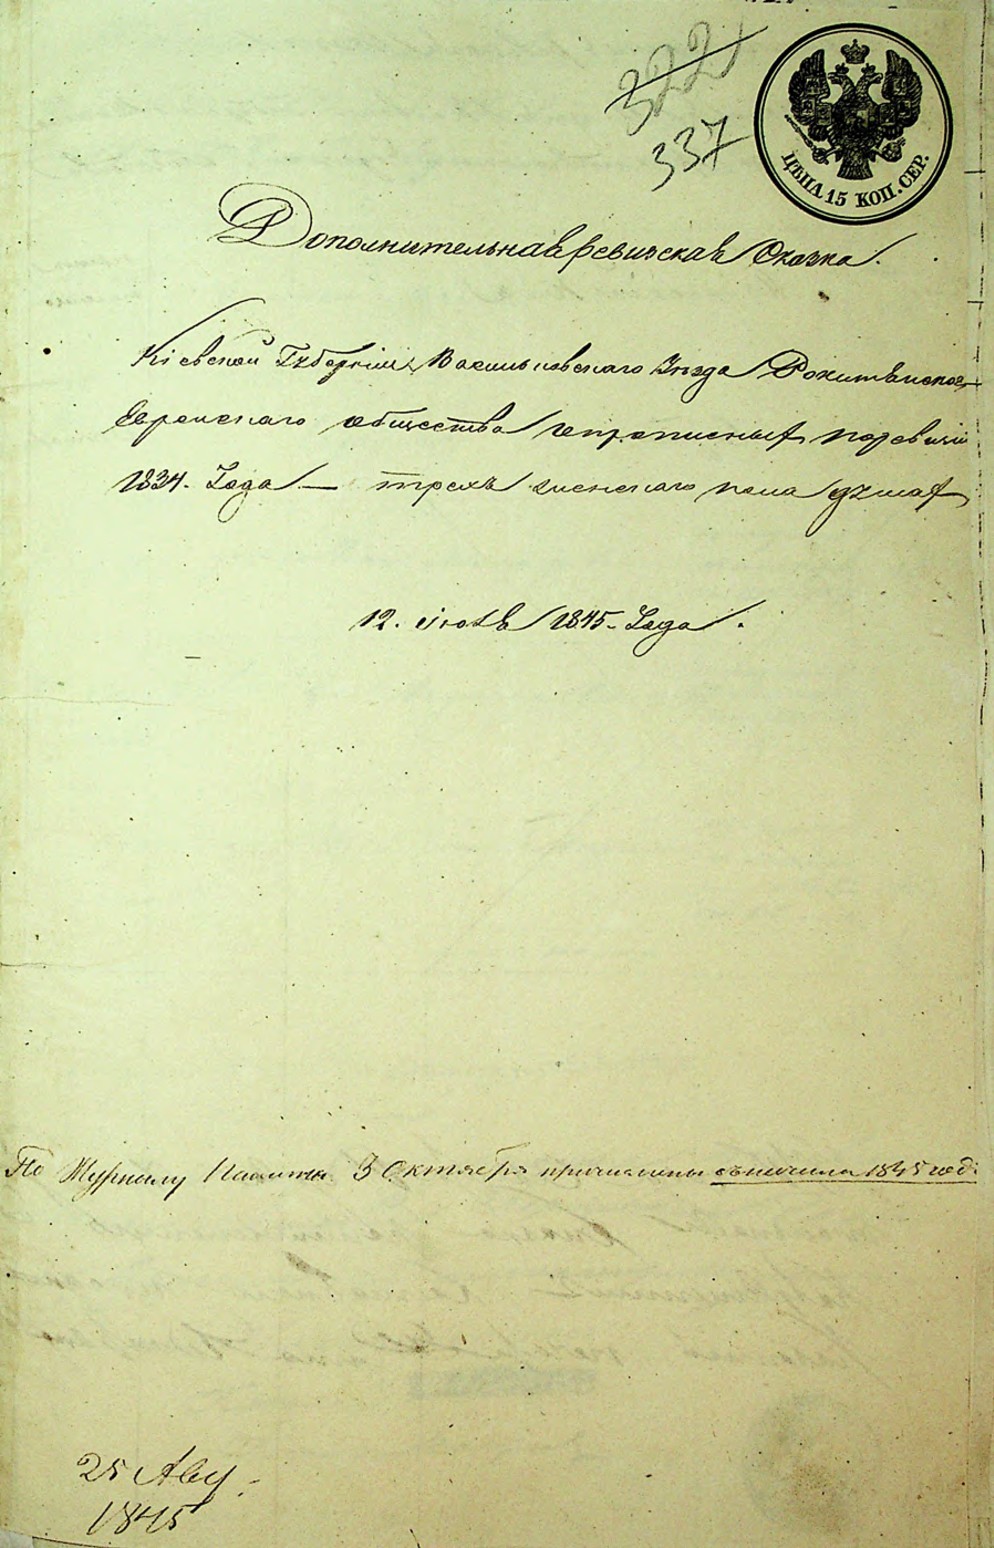 322
337
ЦѢНА 15 КОП. СЕР.
Дополнительная ревизская Сказка.
Кіевской Губерніи, Васильковского Уѣзда Рокитянского
Еврейскаго общества непрописных по ревизіи
1834. Года — трехъ женскаго пола душах
12. іюля 1845. Года.
По Журналу Палаты 3 Октября причислены съ начала 1845 год.
25 Авг.
1845